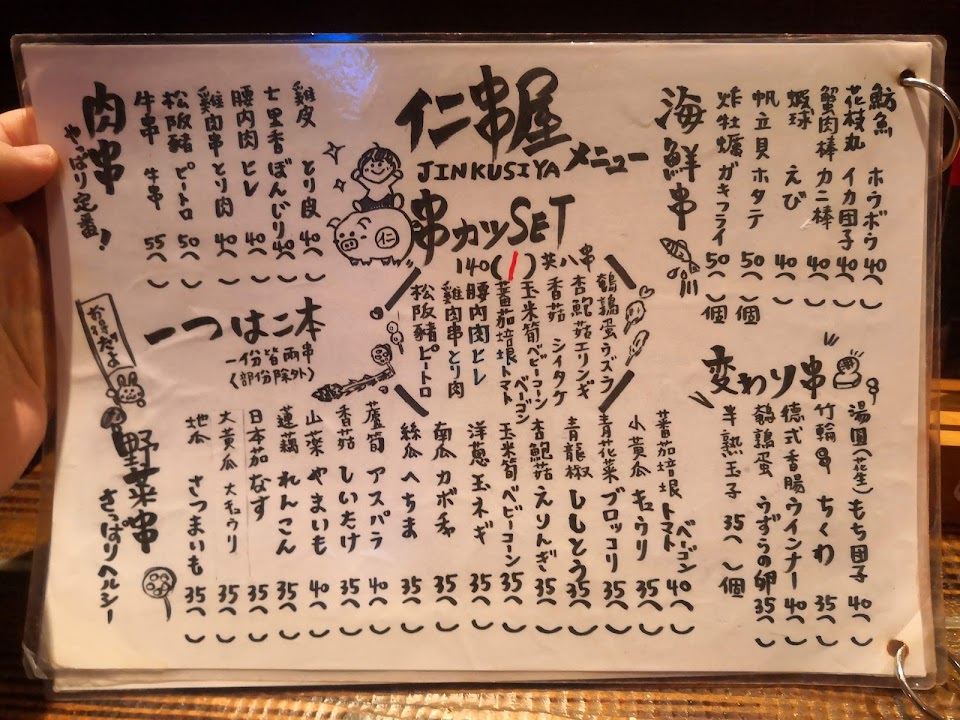 仁串屋
JINKUSIYA メニュー
海鮮串
魴魚 ホウボウ 40( )
花枝丸 イカ団子 40( )
蟹肉棒 カニ棒 40( )
蝦球 えび 40( )
帆立貝 ホタテ 50( )個
炸牡蠣 ガキフライ 50( )個
串カツSET
140(/)共八串
鵪鶉蛋 ウズラ
杏鮑菇 エリンギ
香菇 シイタケ
玉米筍 ベビーコーン
蕃茄培根 トマトベーゴン
腰内肉 ヒレ
雞肉串 とり肉
松阪豬 ピートロ
肉串
やっぱり定番!
雞皮 とり皮 40( )
七里香 ぼんじり 40( )
腰内肉 ヒレ 40( )
雞肉串 とり肉 40( )
松阪豬 ピートロ 50( )
牛串 牛串 55( )
仁
一つは二本
一份皆兩串
(部份除外)
お得だよ
変わり串
湯圓(花生) もち団子 40( )
竹輪 ちくわ 35( )
德式香腸 ウインナー 40( )
鵪鶉蛋 うずらの卵 35( )
半熟玉子 35( )個
野菜串
さっぱりヘルシー
蕃茄培根 トマトベーゴン 40( )
小黃瓜 キュウリ 35( )
青花菜 ブロッコリ 35( )
青龍椒 ししとう 35( )
杏鮑菇 えりんぎ 35( )
玉米筍 ベビーコーン 35( )
洋蔥 玉ネギ 35( )
南瓜 カボチャ 35( )
絲瓜 へちま 35( )
蘆筍 アスパラ 40( )
香菇 しいたけ 35( )
山薬 やまいも 40( )
蓮藕 れんこん 35( )
日本茄 なす 35( )
大黃瓜 大キュウリ 35( )
地瓜 さつまいも 35( )